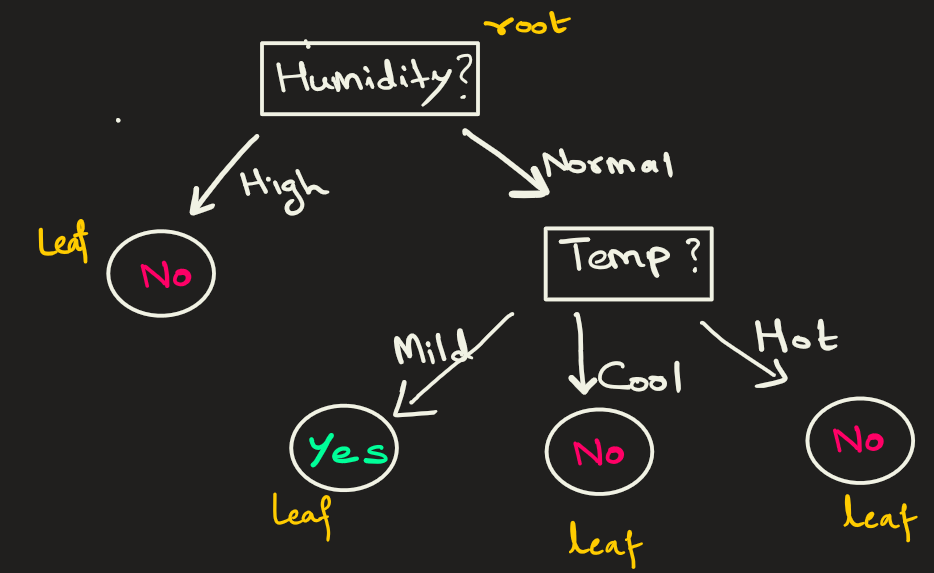 root
Humidity?
High
Normal
Leaf
No
Temp?
Mild
Cool
Hot
Yes
No
No
Leaf
leaf
leaf